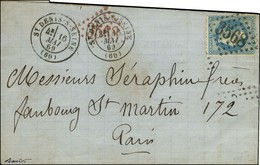 ST DENIS-S-SEINE
4E
16
MAI
69
(60)
ST DENIS-S-SEINE
MAI
69
(60)
Messieurs Séraphin frères
faubourg St martin 172
Paris